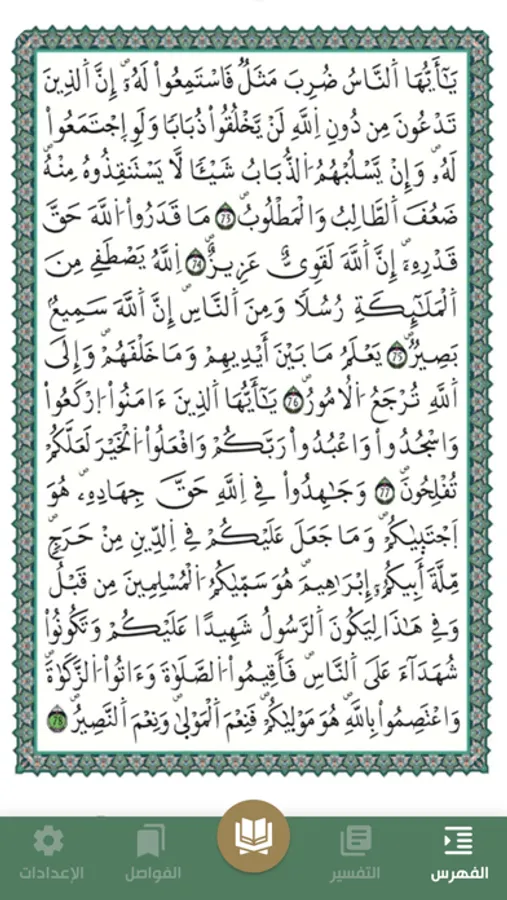 يَـٰٓأَيُّهَا اَ۬لنَّاسُ ضُرِبَ مَثَلٞ فَاسْتَمِعُواْ لَهُۥٓۖ إِنَّ اَ۬لذِينَ
تَدْعُونَ مِن دُونِ اِ۬للَّهِ لَنْ يَّخْلُقُواْ ذُبَابٗا وَلَوِ اِ۪جْتَمَعُواْ
لَهُۥۖ وَإِنْ يَّسْلُبْهُمُ اُ۬لذُّبَابُ شَيْـٔٗا لَّا يَسْتَنقِذُوهُ مِنْهُۖ
ضَعُفَ اَ۬لطَّالِبُ وَالْمَطْلُوبُۖ 73 مَا قَدَرُواْ اُ۬للَّهَ حَقَّ
قَدْرِهِۦٓۖ إِنَّ اَ۬للَّهَ لَقَوِيٌّ عَزِيزٌۖ 74 اِ۬للَّهُ يَصْطَفِے مِنَ
اَ۬لْمَلَـٰٓئِكَةِ رُسُلٗا وَمِنَ اَ۬لنَّاسِۖ إِنَّ اَ۬للَّهَ سَمِيعُۢ
بَصِيرٞۖ 75 يَعْلَمُ مَا بَيْنَ أَيْدِيهِمْ وَمَا خَلْفَهُمْۖ وَإِلَى
اَ۬للَّهِ تُرْجَعُ اُ۬لُامُورُۖ 76 يَـٰٓأَيُّهَا اَ۬لذِينَ ءَامَنُواْ اُ۪رْكَعُواْ
وَاسْجُدُواْ وَاعْبُدُواْ رَبَّكُمْ وَافْعَلُواْ اُ۬لْخَيْرَ لَعَلَّكُمْ
تُفْلِحُونَۖ 77 وَجَـٰهِدُواْ فِے اِ۬للَّهِ حَقَّ جِهَادِهِۦۖ هُوَ
اَ۪جْتَبٜىٰكُمْۖ وَمَا جَعَلَ عَلَيْكُمْ فِے اِ۬لدِّينِ مِنْ حَرَجٖۖ
مِّلَّةَ أَبِيكُمُۥٓ إِبْرَٰهِيمَۖ هُوَ سَمّٜىٰكُمُ اُ۬لْمُسْلِمِينَ مِن قَبْلُ
وَفِے هَـٰذَا لِيَكُونَ اَ۬لرَّسُولُ شَهِيدًا عَلَيْكُمْ وَتَكُونُواْ
شُهَدَآءَ عَلَى اَ۬لنَّاسِۖ فَأَقِيمُواْ اُ۬لصَّلَوٰةَ وَءَاتُواْ اُ۬لزَّكَوٰةَۖ
وَاعْتَصِمُواْ بِاللَّهِۖ هُوَ مَوْلٜىٰكُمْۖ فَنِعْمَ اَ۬لْمَوْلٜىٰ وَنِعْمَ اَ۬لنَّصِيرُۖ 78
الفهرس
التفسير
الفواصل
الإعدادات